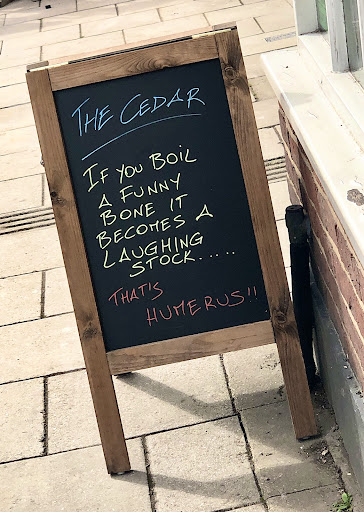 THE CEDAR
IF YOU BOIL
A FUNNY
BONE IT
BECOMES A
LAUGHING
STOCK.....
THAT'S
HUMERUS!!